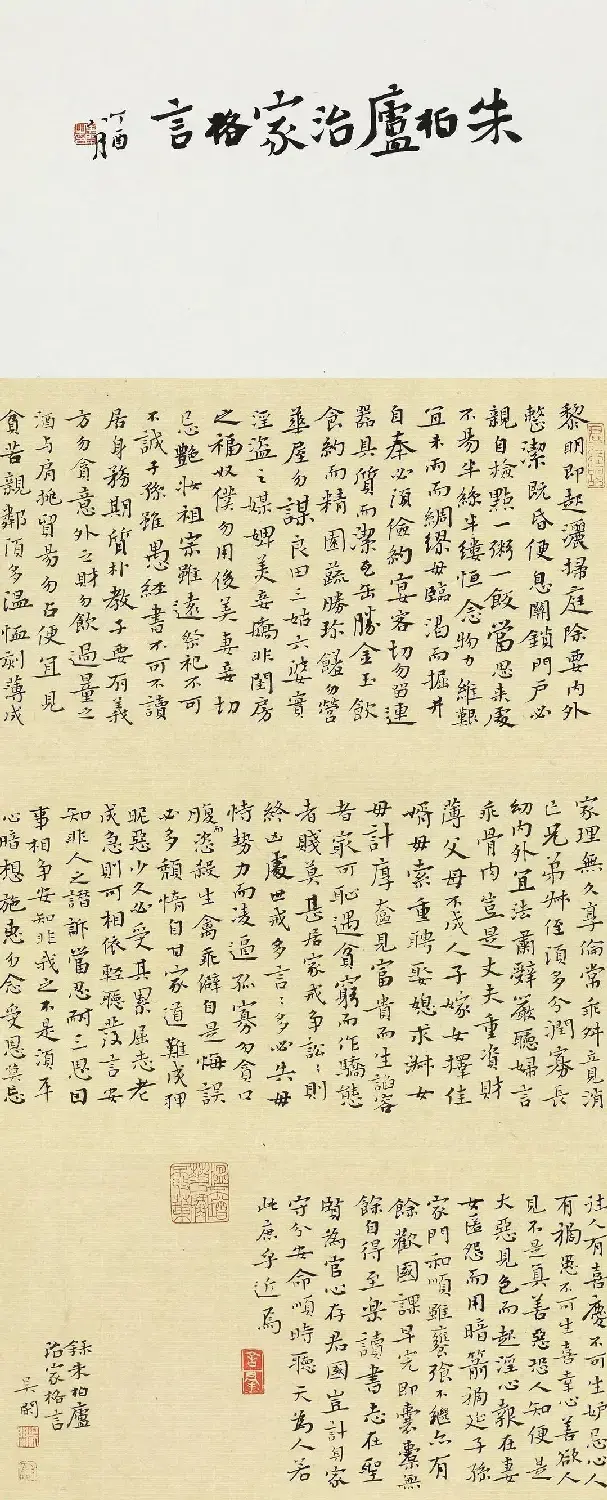 朱柏廬治家格言
丁酉
黎明即起灑掃庭除要內外
整潔既昏便息關鎖門戶必
親自檢點一粥一飯當思來處
不易半絲半縷恒念物力維艱
宜未雨而綢繆毋臨渴而掘井
自奉必須儉約宴客切勿留連
器具質而潔瓦缶勝金玉飲
食約而精園蔬勝珍饈勿營
華屋勿謀良田三姑六婆實
淫盜之媒婢美妾嬌非閨房
之福奴僕勿用俊美妻妾切
忌艷妝祖宗雖遠祭祀不可
不誠子孫雖愚經書不可不讀
居身務期質朴教子要有義
方勿貪意外之財勿飲過量之
酒与肩挑貿易勿占便宜見
貧苦親鄰須多溫恤刻薄成
家理無久享倫常乖舛立見消
亡兄弟叔侄須多分潤寡長
幼內外宜法肅辭嚴聽婦言
乖骨肉豈是丈夫重資財
薄父母不成人子嫁女擇佳
婿毋索重聘娶媳求淑女
毋計厚奩見富貴而生諂容
者最可恥遇貧窮而作驕態
者賤莫甚居家戒爭訟訟則
終凶處世戒多言言多必失毋
恃勢力而凌逼孤寡勿貪口
腹而恣殺生禽乖僻自是悔誤
必多頹惰自甘家道難成狎
昵惡少久必受其累屈志老
成急則可相依輕聽發言安
知非人之譖訴當忍耐三思因
事相爭安知非我之不是須平
心暗想施惠勿念受恩莫忘
注人有喜慶不可生妒忌心人
有禍患不可生喜幸心善欲人
見不是真善惡恐人知便是
大惡見色而起淫心報在妻
女匿怨而用暗箭禍延子孫
家門和順雖饔飧不繼亦有
餘歡國課早完即囊橐無
餘自得至樂讀書志在聖
賢為官心存君國豈計身家
守分安命順時聽天為人若
此庶乎近焉
錄朱柏廬
治家格言
吳